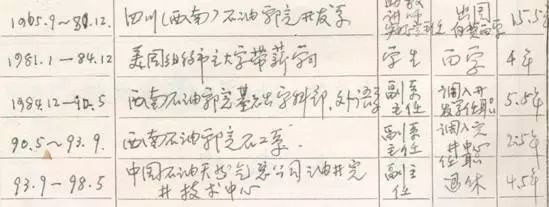 1965.9~80.12. 四川(西南)石油学院开发系 讲师 出国 15.5年
1981.1—84.12 美国纽约市立大学带薪学习 学生 西学 4年
1984.12—90.5 西南石油学院基础学科部、外语系 副系主任 调入开 5.5年
90.5~93.9. 西南石油学院石工系. 副系主任 调入完井中心任职 2.5年
93.9—98.5 中国石油天然气总公司油井完井技术中心 副主任 退休 4.5年